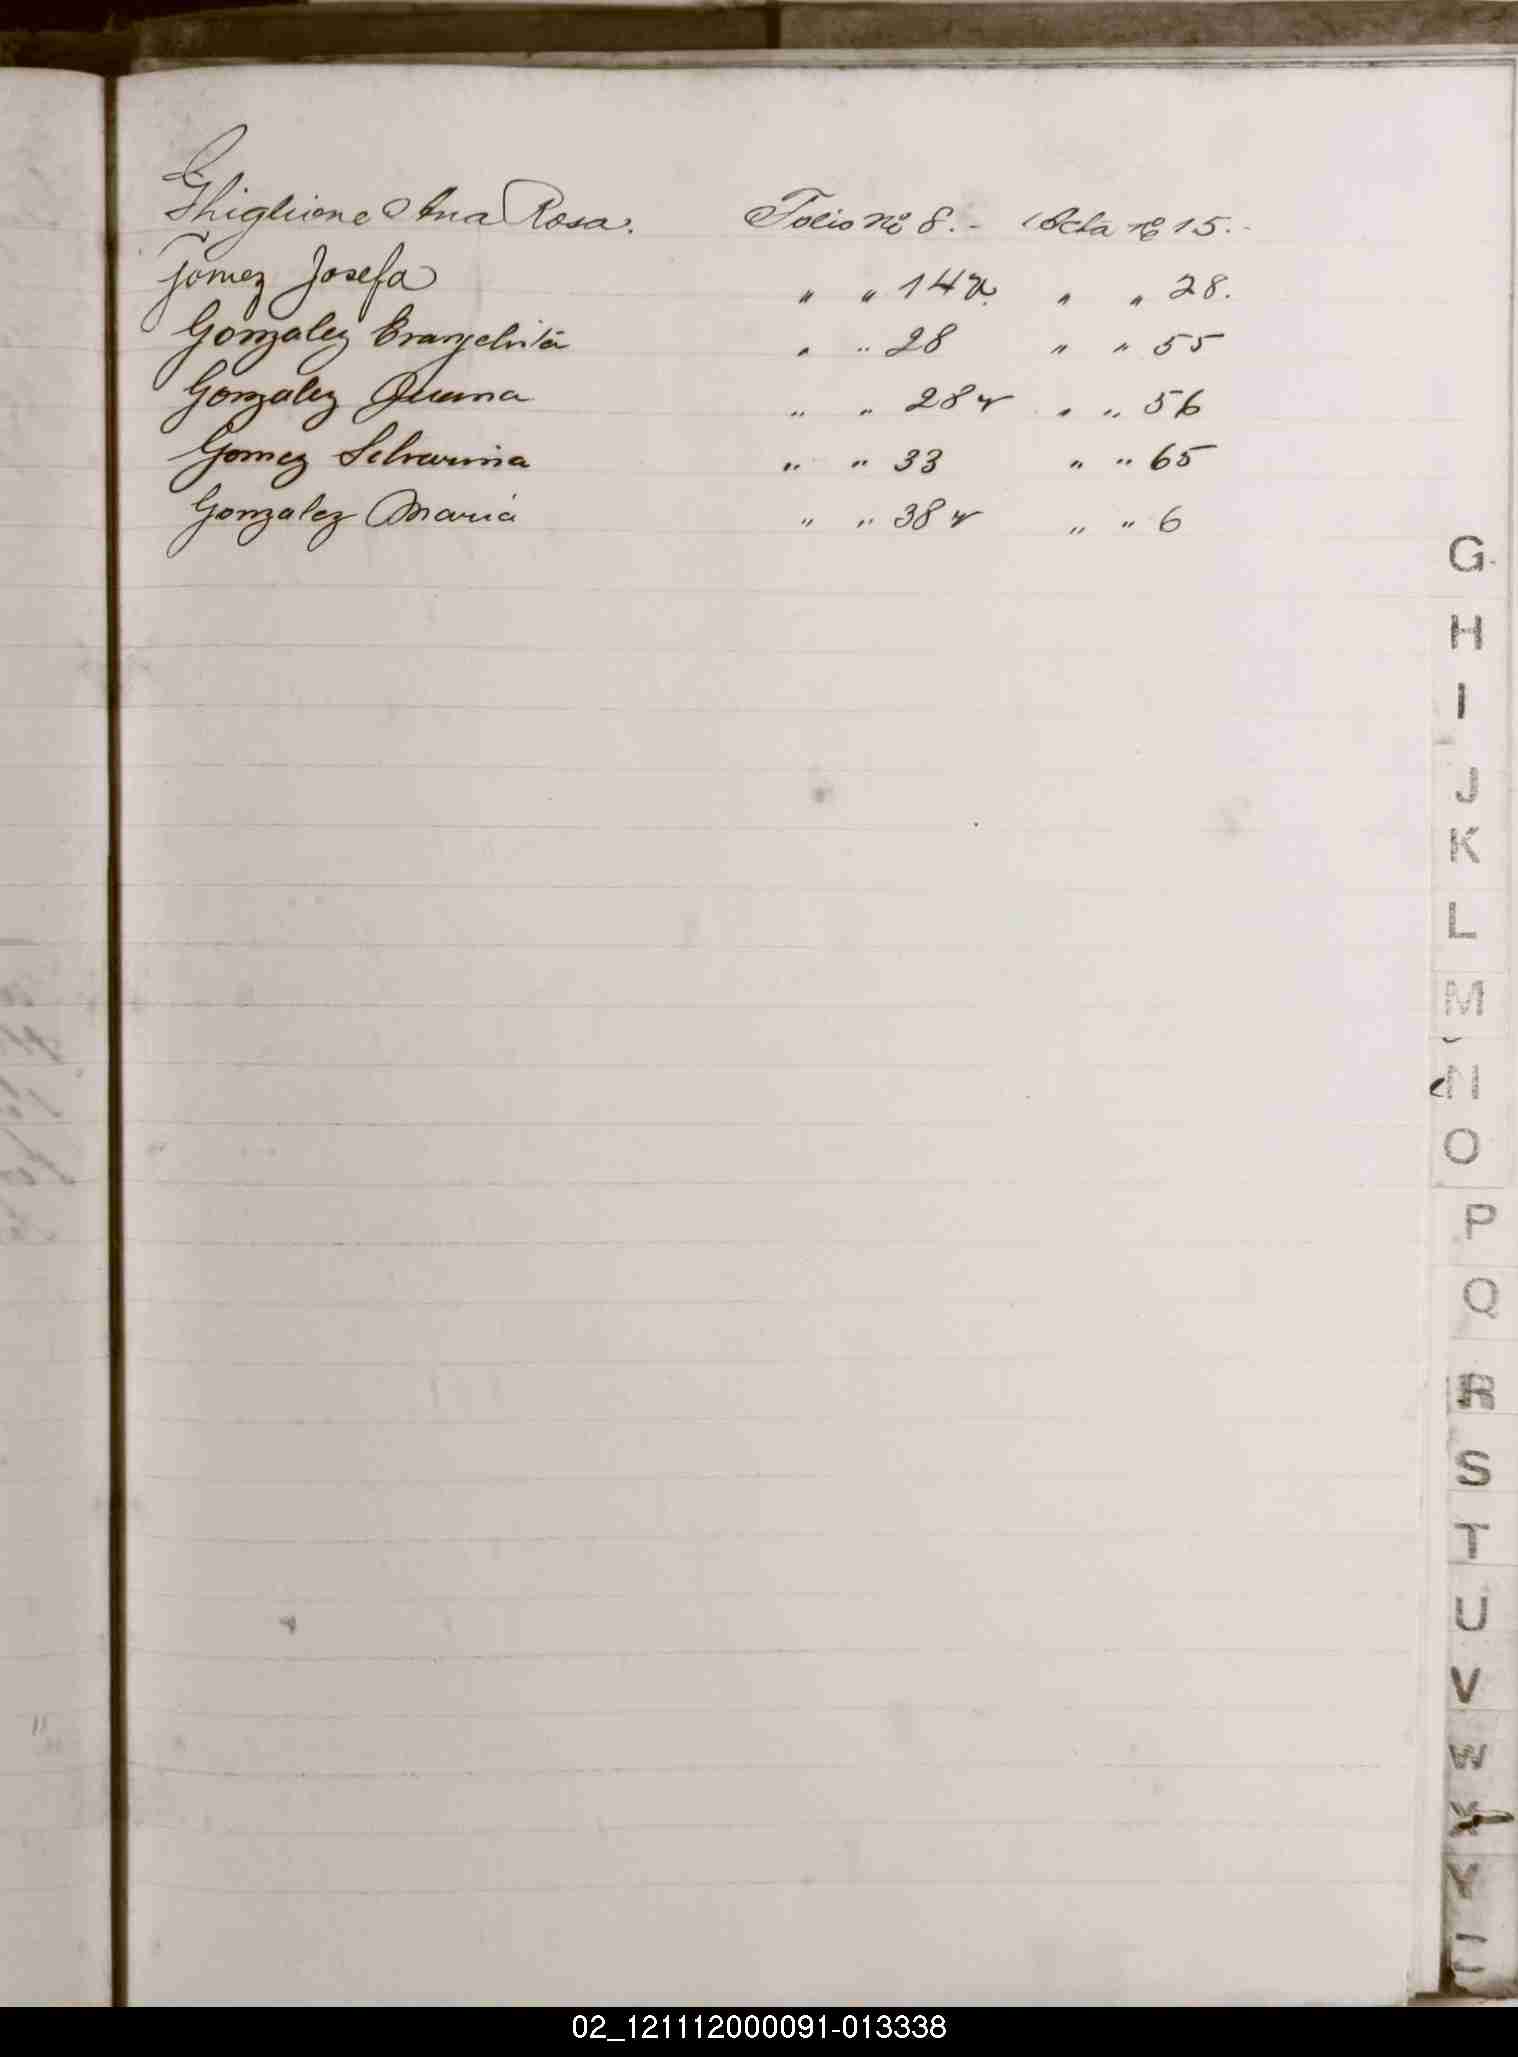 Ghiglione Ana Rosa. Folio Nº 8.- Acta Nº 15.-
Gomez Josefa " " 14 v. " " 28.
Gonzalez Evangelista " " 28 " " 55
Gonzalez Juana " " 28 v " " 56
Gomez " " 33 " " 65
Gonzalez Maria " " 38 v " " 6
G
H
I
J
K
L
M
N
O
P
Q
R
S
T
U
V
W
X
Y
02_121112000091-013338